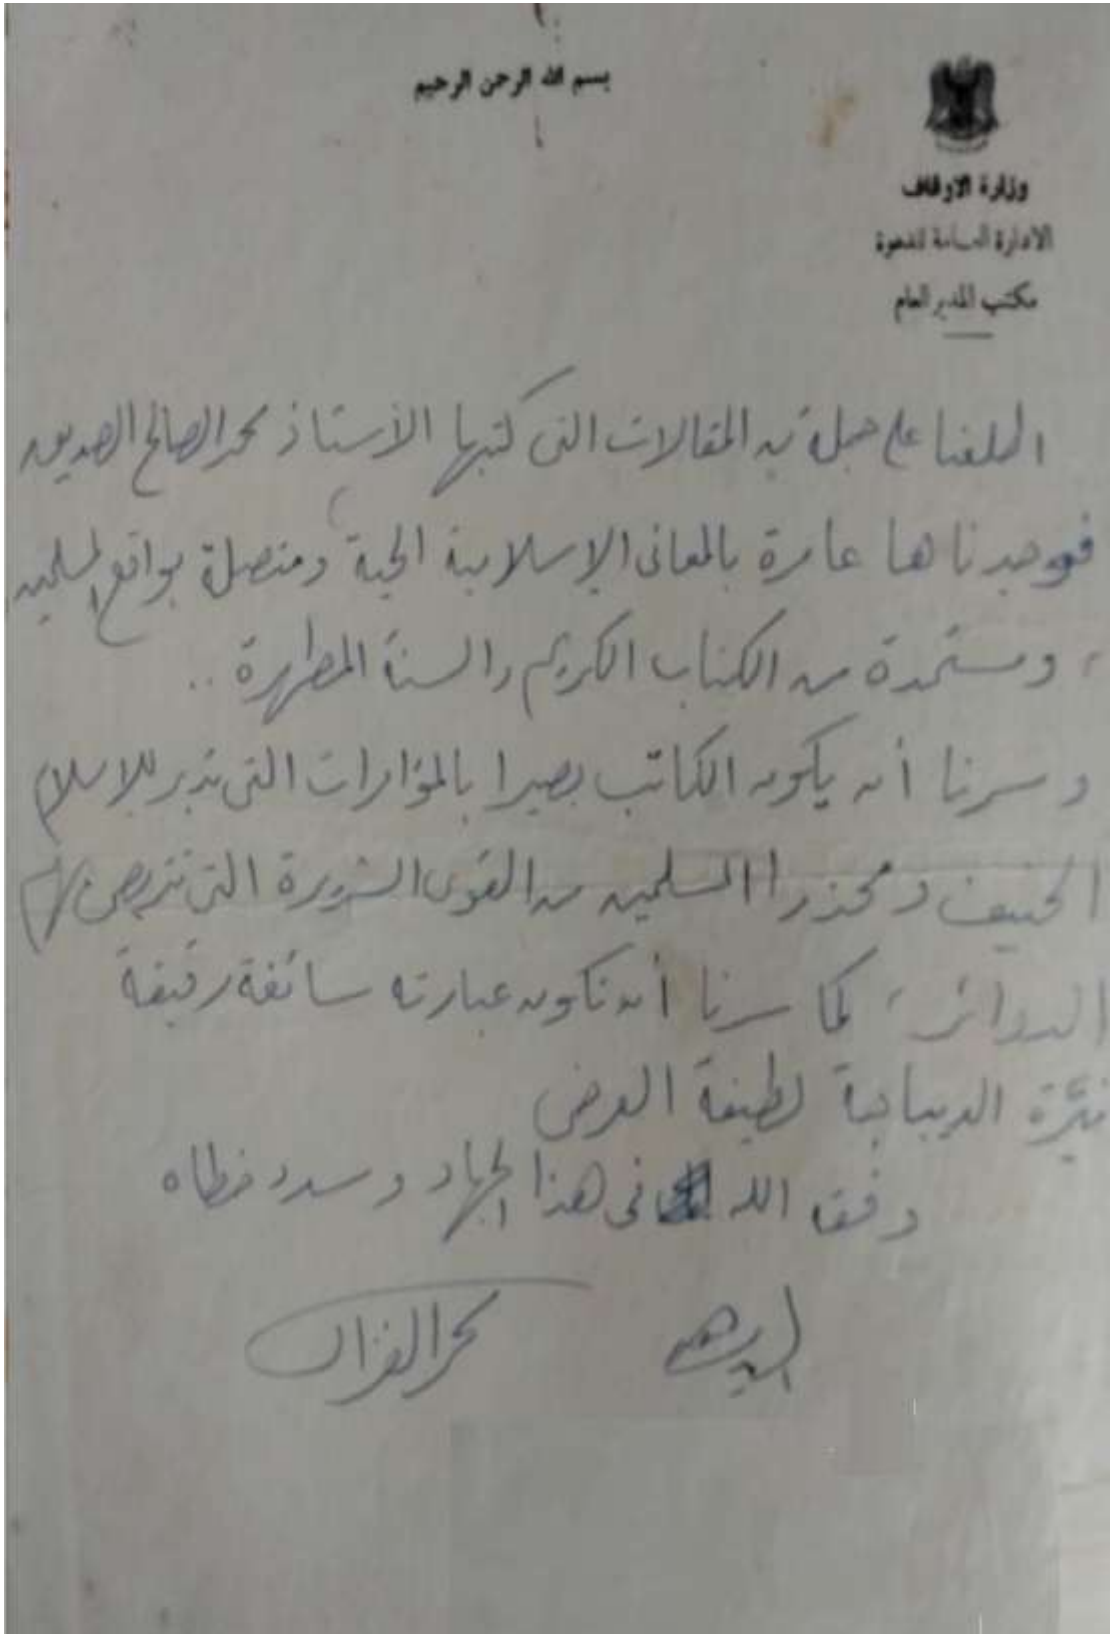 بسم الله الرحمن الرحيم
وزارة الاوقاف
الادارة العامة للدعوة
مكتب المدير العام
اطلعنا على جملة من المقالات التى كتبها الأستاذ محمد الصالح الصديق
فوجدناها عامرة بالمعانى الإسلامية الحية ومتصلة بواقع المسلمين
، ومستمدة من الكتاب الكريم والسنة المطهرة ..
وسرنا أن يكون الكاتب بصيرا بالمؤامرات التى تدبر للإسلام
الحنيف ومحذرا المسلمين من القوى الشريرة التى تتربص بهم
الدوائر، كما سرنا أن تكون عبارته سائغة رقيقة
نيّرة الديباجة لطيفة العرض
وفقه الله فى هذا الجهاد وسدد خطاه
محمد الغزالى